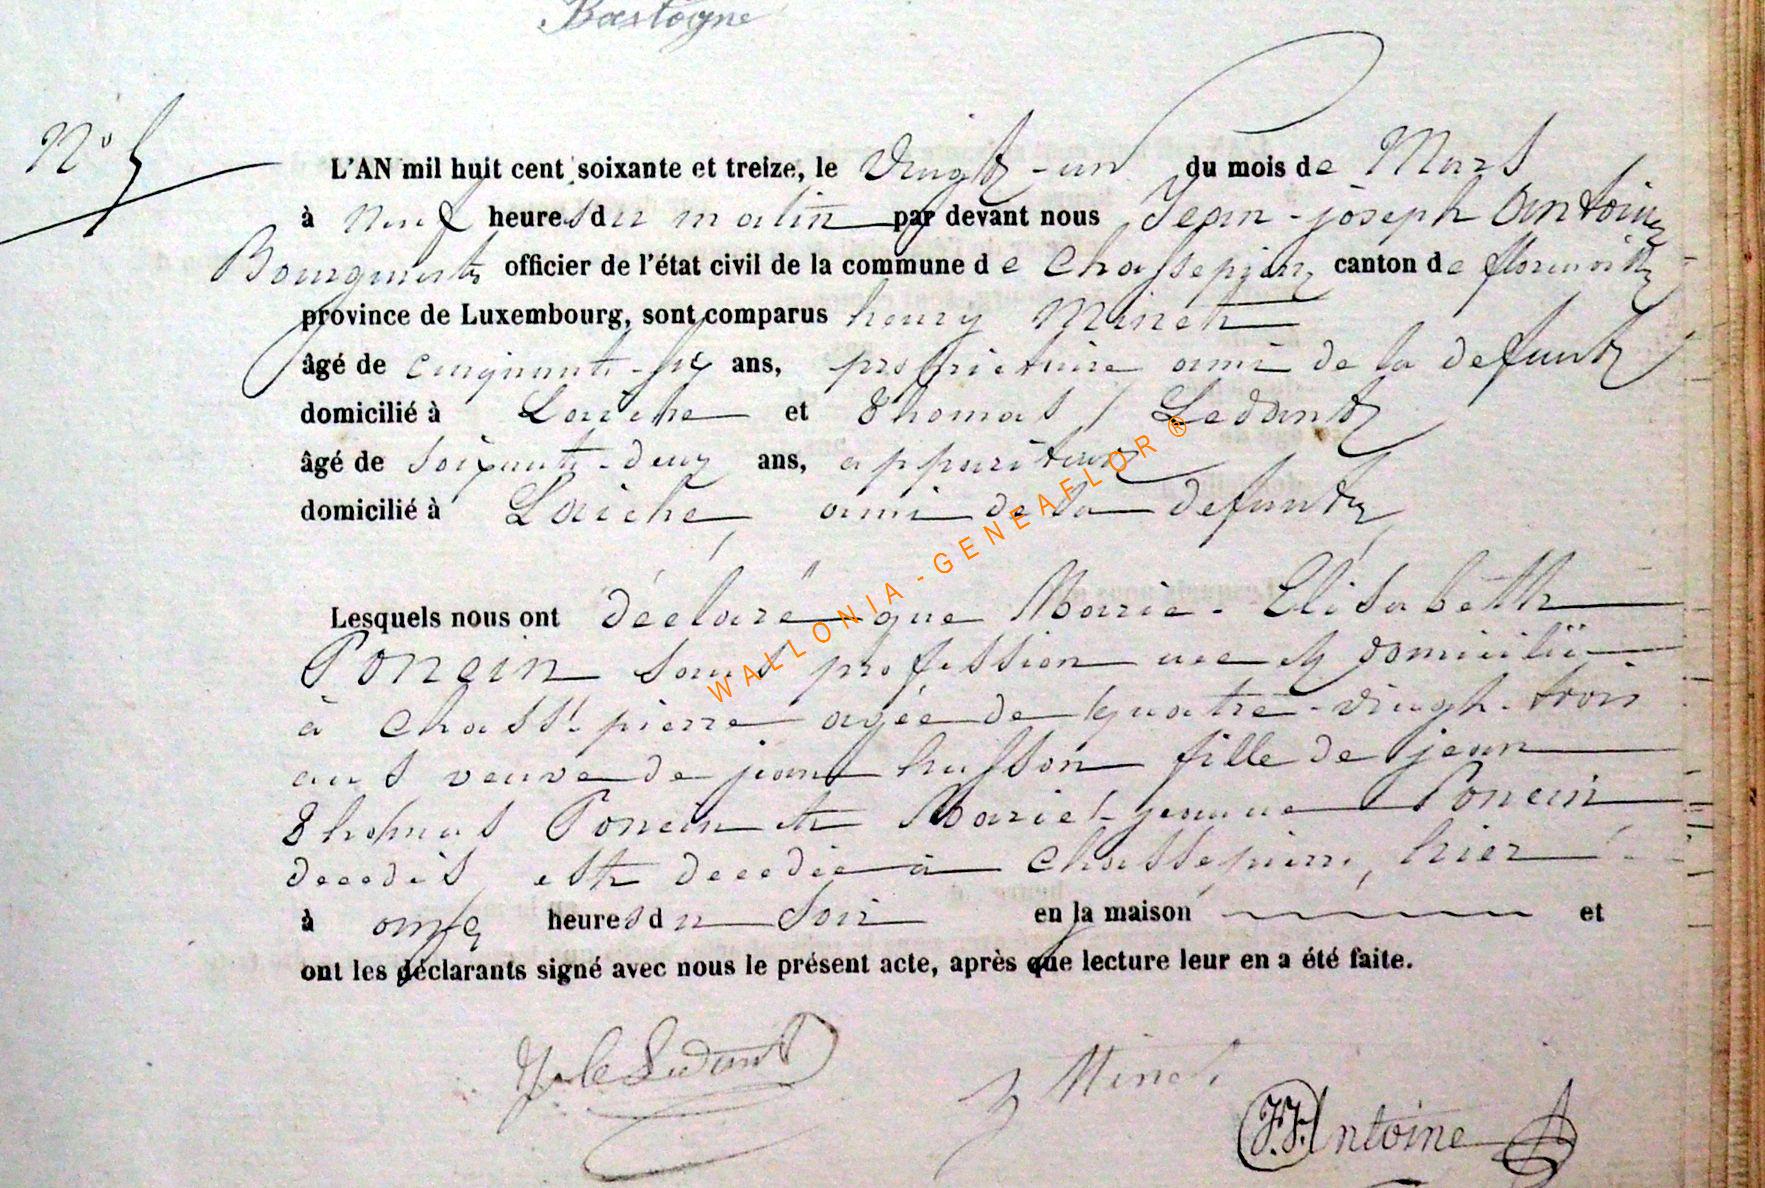 Bastogne
N° 5
L'AN mil huit cent soixante et treize, le vingt-un du mois de Mars
à neuf heures du matin par devant nous Jean-joseph Antoine
Bourgmestre officier de l'état civil de la commune de Chassepierre canton de florenville
province de Luxembourg, sont comparus henry Minet
âgé de cinquante-six ans, propriétaire ami de la defunte
domicilié à Laiche et Thomas Ledant
âgé de soixante-deux ans, appariteur
domicilié à Laiche, ami de la defunte
Lesquels nous ont déclaré que Marie-Elisabeth
Poncin sans profession née et domicilié
à Chassepierre agée de quatre-vingt-trois
ans veuve de jean husson fille de jean
Thomas Poncin et Marie-jeanne Poncin
decedés est decedée à Chassepierre, hier
à onze heures du Soir en la maison et
ont les déclarants signé avec nous le présent acte, après que lecture leur en a été faite.
Ledant
Minet
J.J. Antoine
WALLONIA-GENEAFLOR ®